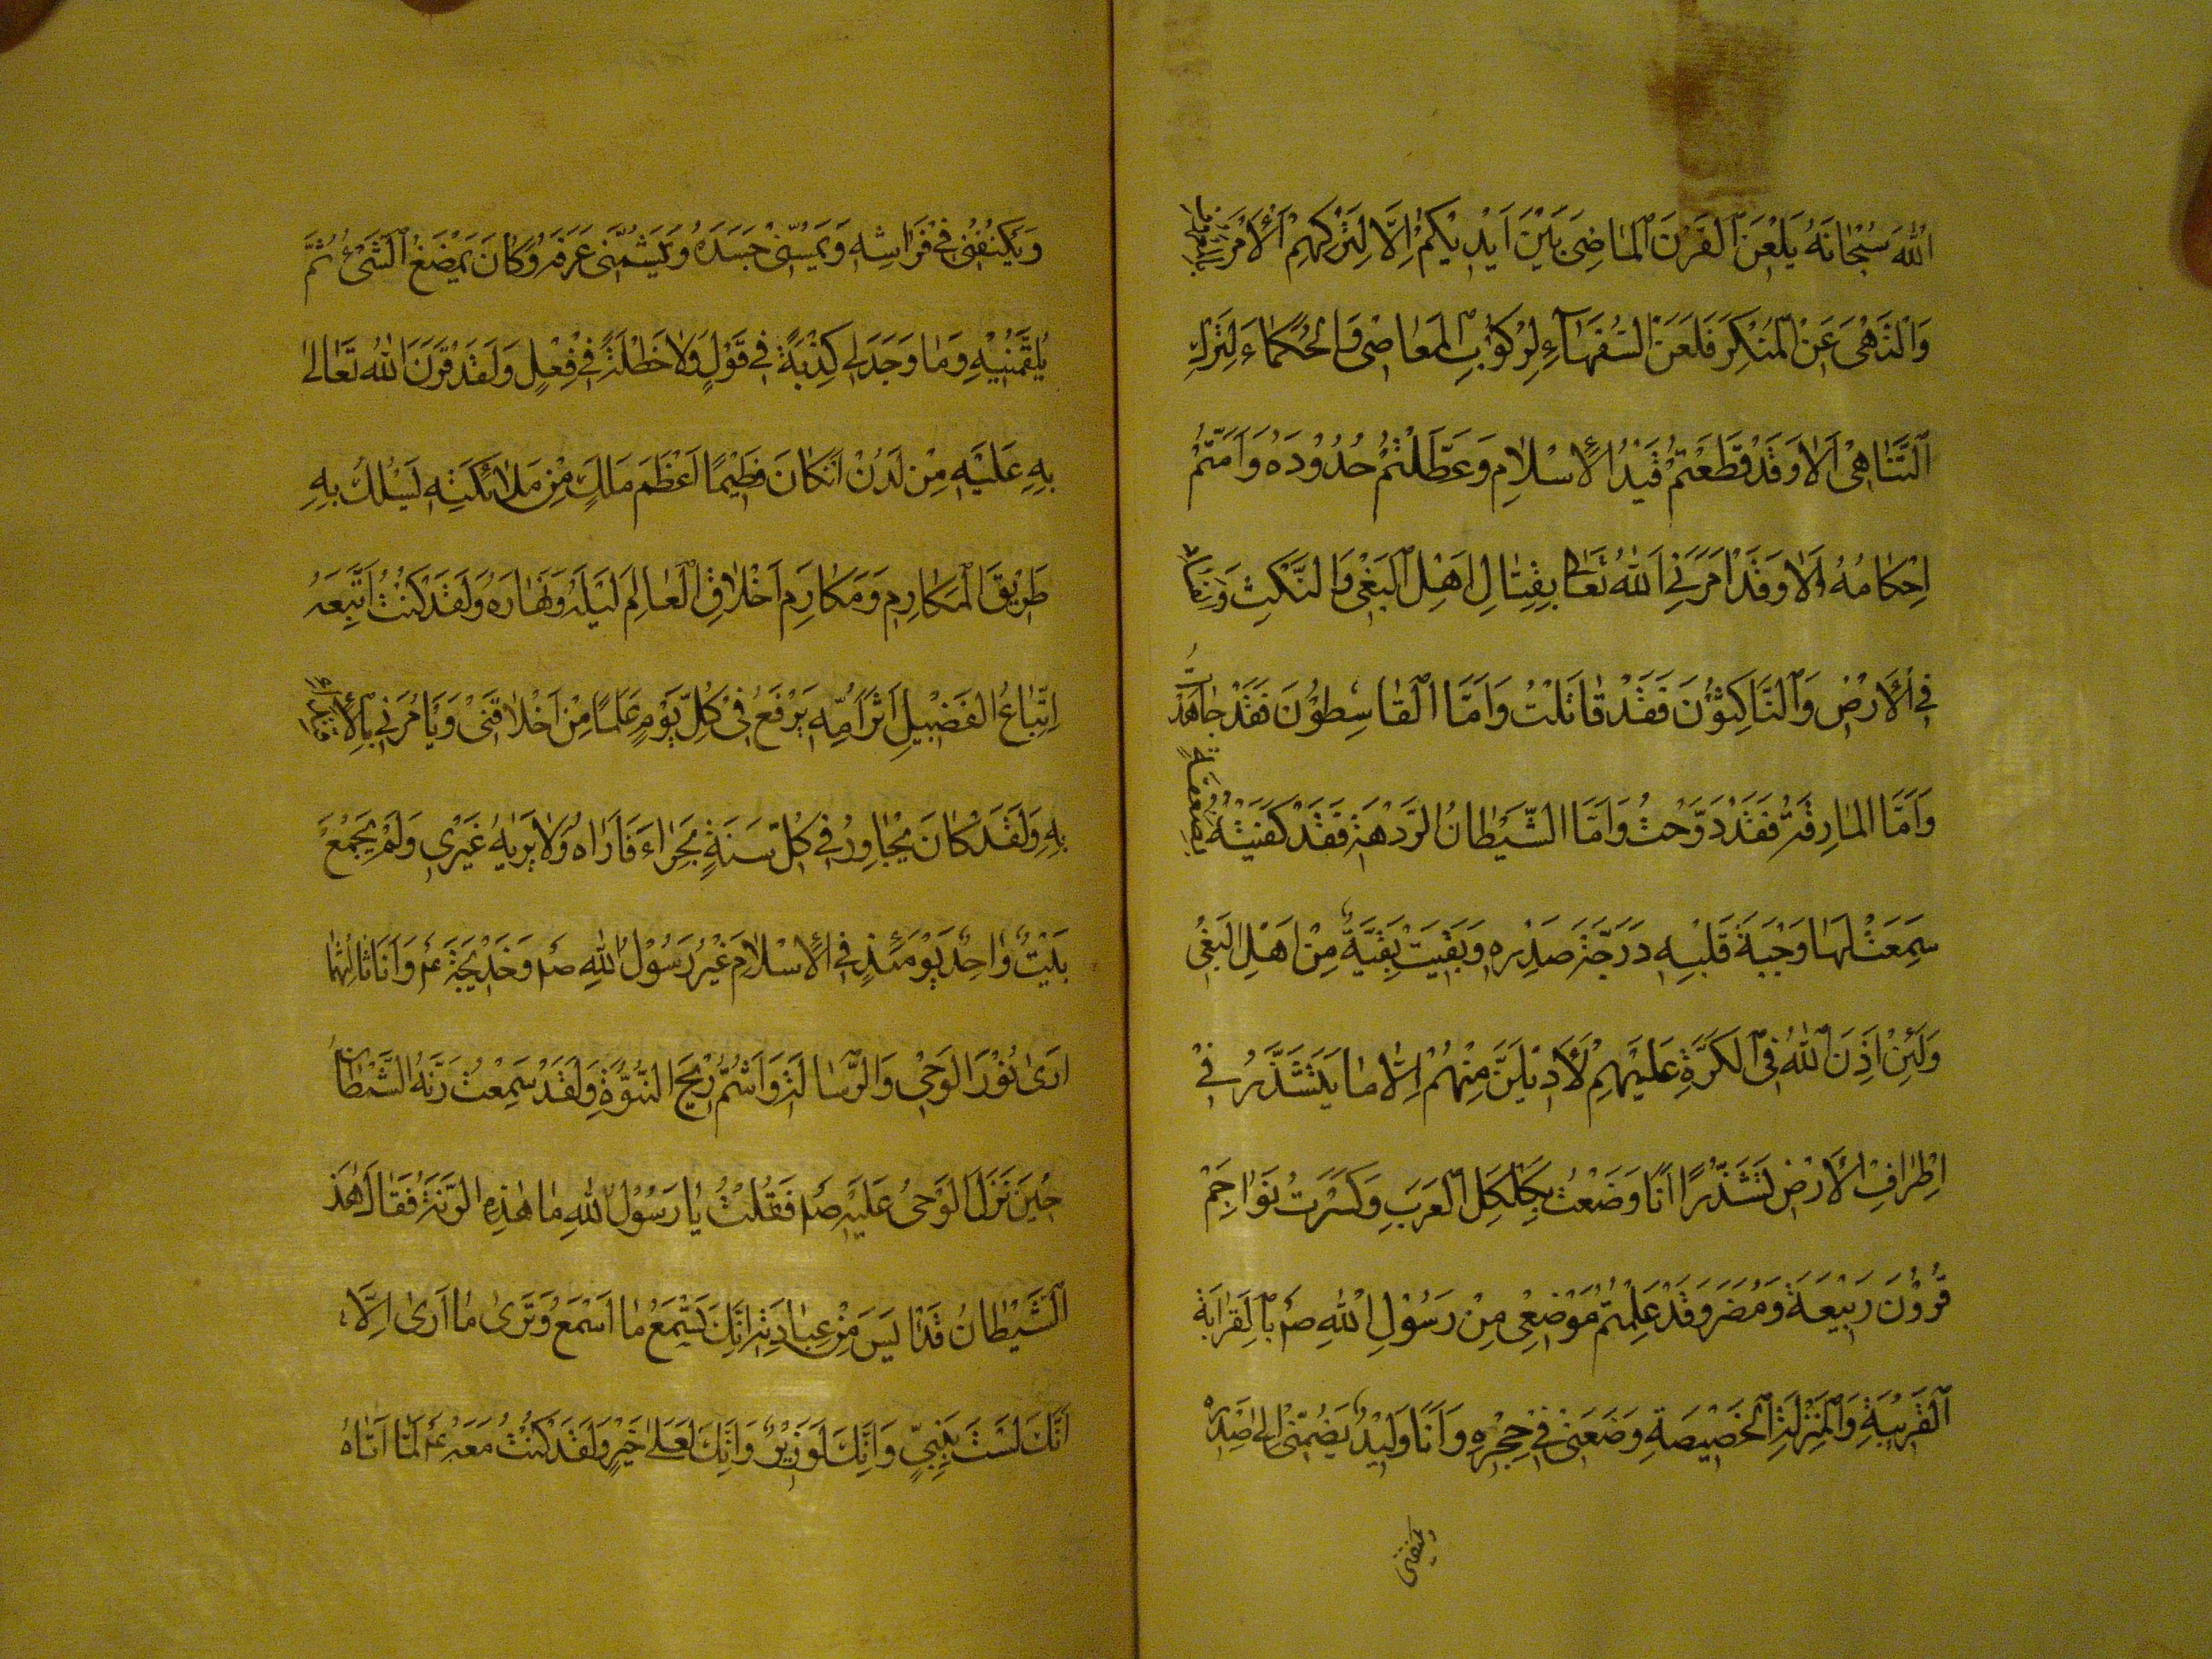 اللهَ سُبْحَانَهُ يَلْعَنَ القَرْنَ المَاضِيَ بَيْنَ اَيْدِيكُمْ اِلَّا لِتَرْكِهِمِ الْاَمْرَ بالمعروف
وَالنَّهْىَ عَنْ المُنْكَرِ فَلَعَنَ السُفَهَاءِ لِرُكُوبِ المَعَاصِى وَالحُكَمَاءَ لِتَرْكِ
التَّنَاهِىْ اَلَا وَقَدْ قَطَعْتُمْ قَيْدَ الْاِسْلَامِ وَعَطَّلْتُمْ حُدُوْدَهُ وَاَمَتُّمْ
اِحْكَامُهُ اَلَا وَقَدْ اَمَرَنِي اَللهُ تَعَالى بِقِتَالِ اَهْلِ الْبَغْىِ وَالنَّكْثِ وَالفَسَادِ
فِي الْاَرْضِ وَالنَّاكِثوُنَ فَقَدْ قَاتَلْتُ وَاَمَّا القَاسِطُوْنَ فَقَدْ جَاهَدْتُ
وَاَمَّا المَارِقَةُ فَقَدْ دَوَّخْتُ وَاَمَّا الشَّيْطَانُ الرَّدْهَةِ فَقَدْ كَفَيْتُهُ بِصَعْقَةٍ
سَمِعَتْ لَهَا وَجْبَةَ قَلْبِهِ وَرَجَّةَ صَدْرِهِ وَبَقِيَتْ بَقِيَّةٌ مِنْ اَهْلِ البَغْىِ
وَلَئِنْ اَذِنَ اللهُ فِى الكَرَّةِ عَلَيْهِمْ لَاُدِيْلَنَّ مِنْهُمْ اِلَّا مَا يَتَشَذَّرُ فِيْ
اَطْرَافِ الْاَرْضِ تَشَذُّرًا اَنَا وَضَعْتُ بِكَلْكَلِ العَرَبِ وَكَسَرْتُ نَوَاجِمَ
قُرُوْنَ رَبِيْعَةَ وَمُضَرَ وَقَدْ عَلِمْتُمْ مَوْضِعِى مِنْ رَسُوْلِ اللهِ صم بِالقَرَابَةِ
القَرِيْبَةِ وَالمَنْزِلَةِ الخَصِيْصَةِ وَضَعَنِىْ فِيْ حِجْرِهِ وَاَنَا وَلِيْدٌ يَضُمُّنِىْ اِلَى صَدْرِهِ
ويكنفنى
وَيَكْنُفُنِىْ فِيْ فِرَاشِهِ وَيُمِسُّنِىْ جَسَدَهُ وَيُشِمُّنِى عَرَفَهُ وَكَانَ يَمْضَغُ الشَّىْءَ ثُمَّ
يُلَقِّمُنِيْهِ وَمَا وَجَدَ لِي كِذْبَةً فِي قَوْلٍ وَلَا خَطْلَةً فِيْ فِعْلٍ وَلَقَدْ قَرَنَ اللهُ تَعَالى
بِهِ عَلَيْهِ مِنْ لَدُنْ اَنْ كَانَ فَطِيْمًا اَعْظَمَ مَلَكٍ مِنْ مَلَائِكَتِهِ يَسْلُكُ بِهِ
طَرِيْقَ المَكَارِمِ وَمَكَارِمَ اَخْلَاقِ العَالَمِ لَيْلَهُ وَنَهَارَهُ وَلَقَدْ كُنْتُ اَتَّبِعُهُ
اِتِّبَاعُ الفَصِيْلِ اَثَرَ اُمِّهِ يَرْفَعُ فِيْ كُلِّ يَوْمٍ عَلَمًا مِنْ اَخْلَاقِهِ وَيَأمُرُنِي بِالْاِقتداء
بِهِ وَلَقَدْ كَانَ يُجَاوِرُ فِي كُلِّ سَنَةٍ بِحِرَاءَ فَاَرَاهُ وَلَا يَرَيهُ غَيْرِى وَلَمْ يَجْمَعُ
بَيْتٌ وَاحِدٌ يَوْمَئِذٍ فِي الْاِسْلَامِ غَيْرُ رَسُوْلُ اللهِ صم وَخَدِيْجَةَ عم وَاَنَا ثَالِثُهُمَا
اَرَى نُوْرَ الوَحْىِ وَالرِّسَالَةِ وَاَشُمُّ رِيْحَ النُّبُوَّةِ وَلَقَدْ سَمِعْتُ رَنَّةُ الشَّيْطَانِ
حِيْنَ نَزَلَ الوَحْىُ عَلَيْهِ صم فَقُلْتُ يَا رَسُوْلُ اللهِ مَا هَذِهِ الرَّنَّةُ فَقَالَ هَذَ
الشَّيْطَانُ قَدْ اَيِسَ مِنْ عِبَادَتِهِ اِنَّكَ تَسْمَعُ مَا اَسْمَعُ وَتَرَى مَا اَرَى اِلَّا
اَنَّكَ لَسْتَ بِنَبِيٍّ وَاِنَّكَ لَوَزِيْرٌ وَاِنَّكَ لَعَلَى خَيْرٍ وَلَقَدْ كُنْتُ مَعَهُ عم لَمَّا اَتَاهُ